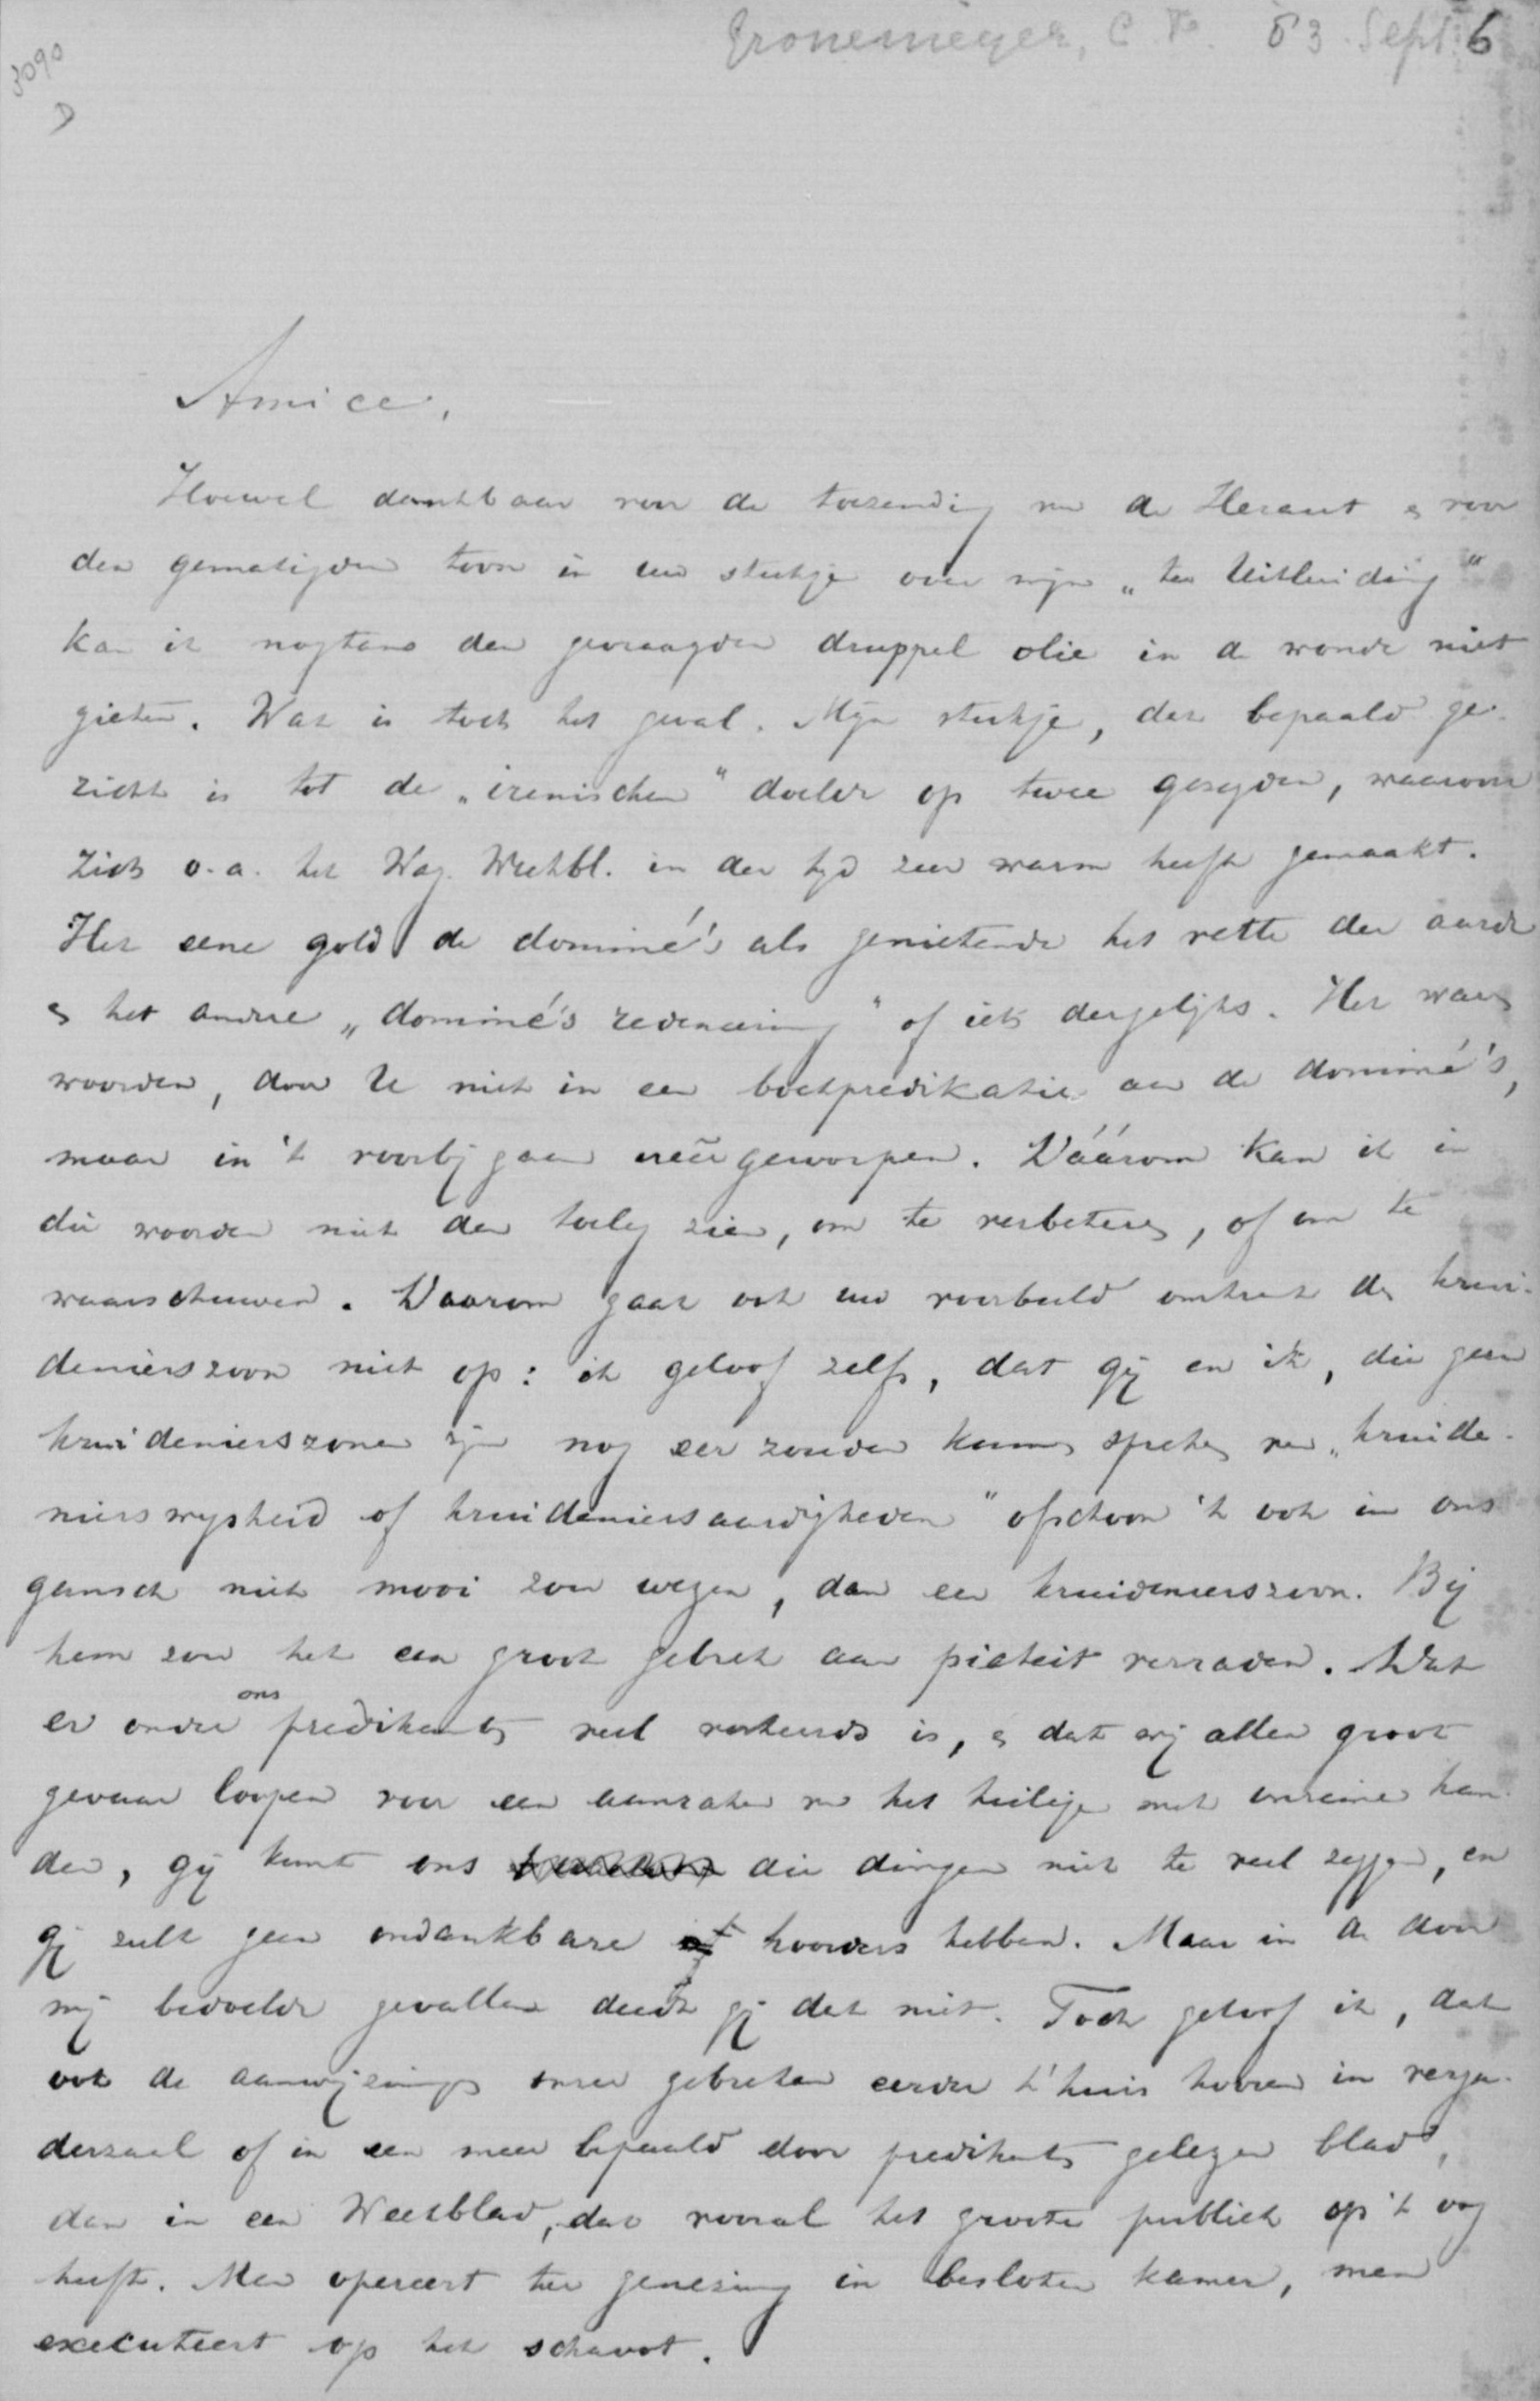 Gronemeyer, C. P. 83. Sept. 6
3090
D
Amice,
Hoewel dankbaar voor de toezending van de Heraut en voor
den gematigden toon in uw stukje over mijn „ter Uitleiding"
kan ik nogtans den gevraagden druppel olie in de wonde niet
gieten. Wat is toch het geval. Mijn stukje, dat bepaald ge-
richt is tot de „irenischen" doelde op twee gezegden, waarover
zich o.a. het Wag. Weekbl. in der tijd zeer warm heeft gemaakt.
Het eene gold de dominé's als genietende het vette der aarde
en het andere „dominé's redeneering" of iets dergelijks. Het waren
woorden, door U niet in een boetpredikatie aan de dominé's,
maar in 't voorbijgaan neergeworpen. Dáárom kan ik in
die woorden niet den toeleg zien, om te verbeteren, of om te
waarschuwen. Daarom gaat ook uw voorbeeld omtrent den krui-
denierszoon niet op: ik geloof zelfs, dat gij en ik, die geen
kruidenierszonen zijn nog eer zouden kunnen spreken van „kruide-
nierswijsheid of kruideniersaardigheden" ofschoon 't ook in ons
gansch niet mooi zou wezen, dan een kruidenierszoon. Bij
hem zou het een groot gebrek aan piëteit verraden. Dat
er onder ons predikanten veel verkeerds is, en dat wij allen groot
gevaar loopen voor een aanraken van het heilige met onreine han-
den, gij kunt ons die dingen niet te veel zeggen, en
gij zult geen ondankbare hoorders hebben. Maar in de door
mij bedoelde gevallen deedt gij dat niet. Toch geloof ik, dat
ook de aanwijzingen onzer gebreken eerder t'huis hooren in verga-
derzaal of in een meer bepaald door predikanten gelezen blad,
dan in een Weekblad, dat vooral het groote publiek op 't oog
heeft. Men opereert ter genezing in besloten kamer, men
executeert op het schavot.